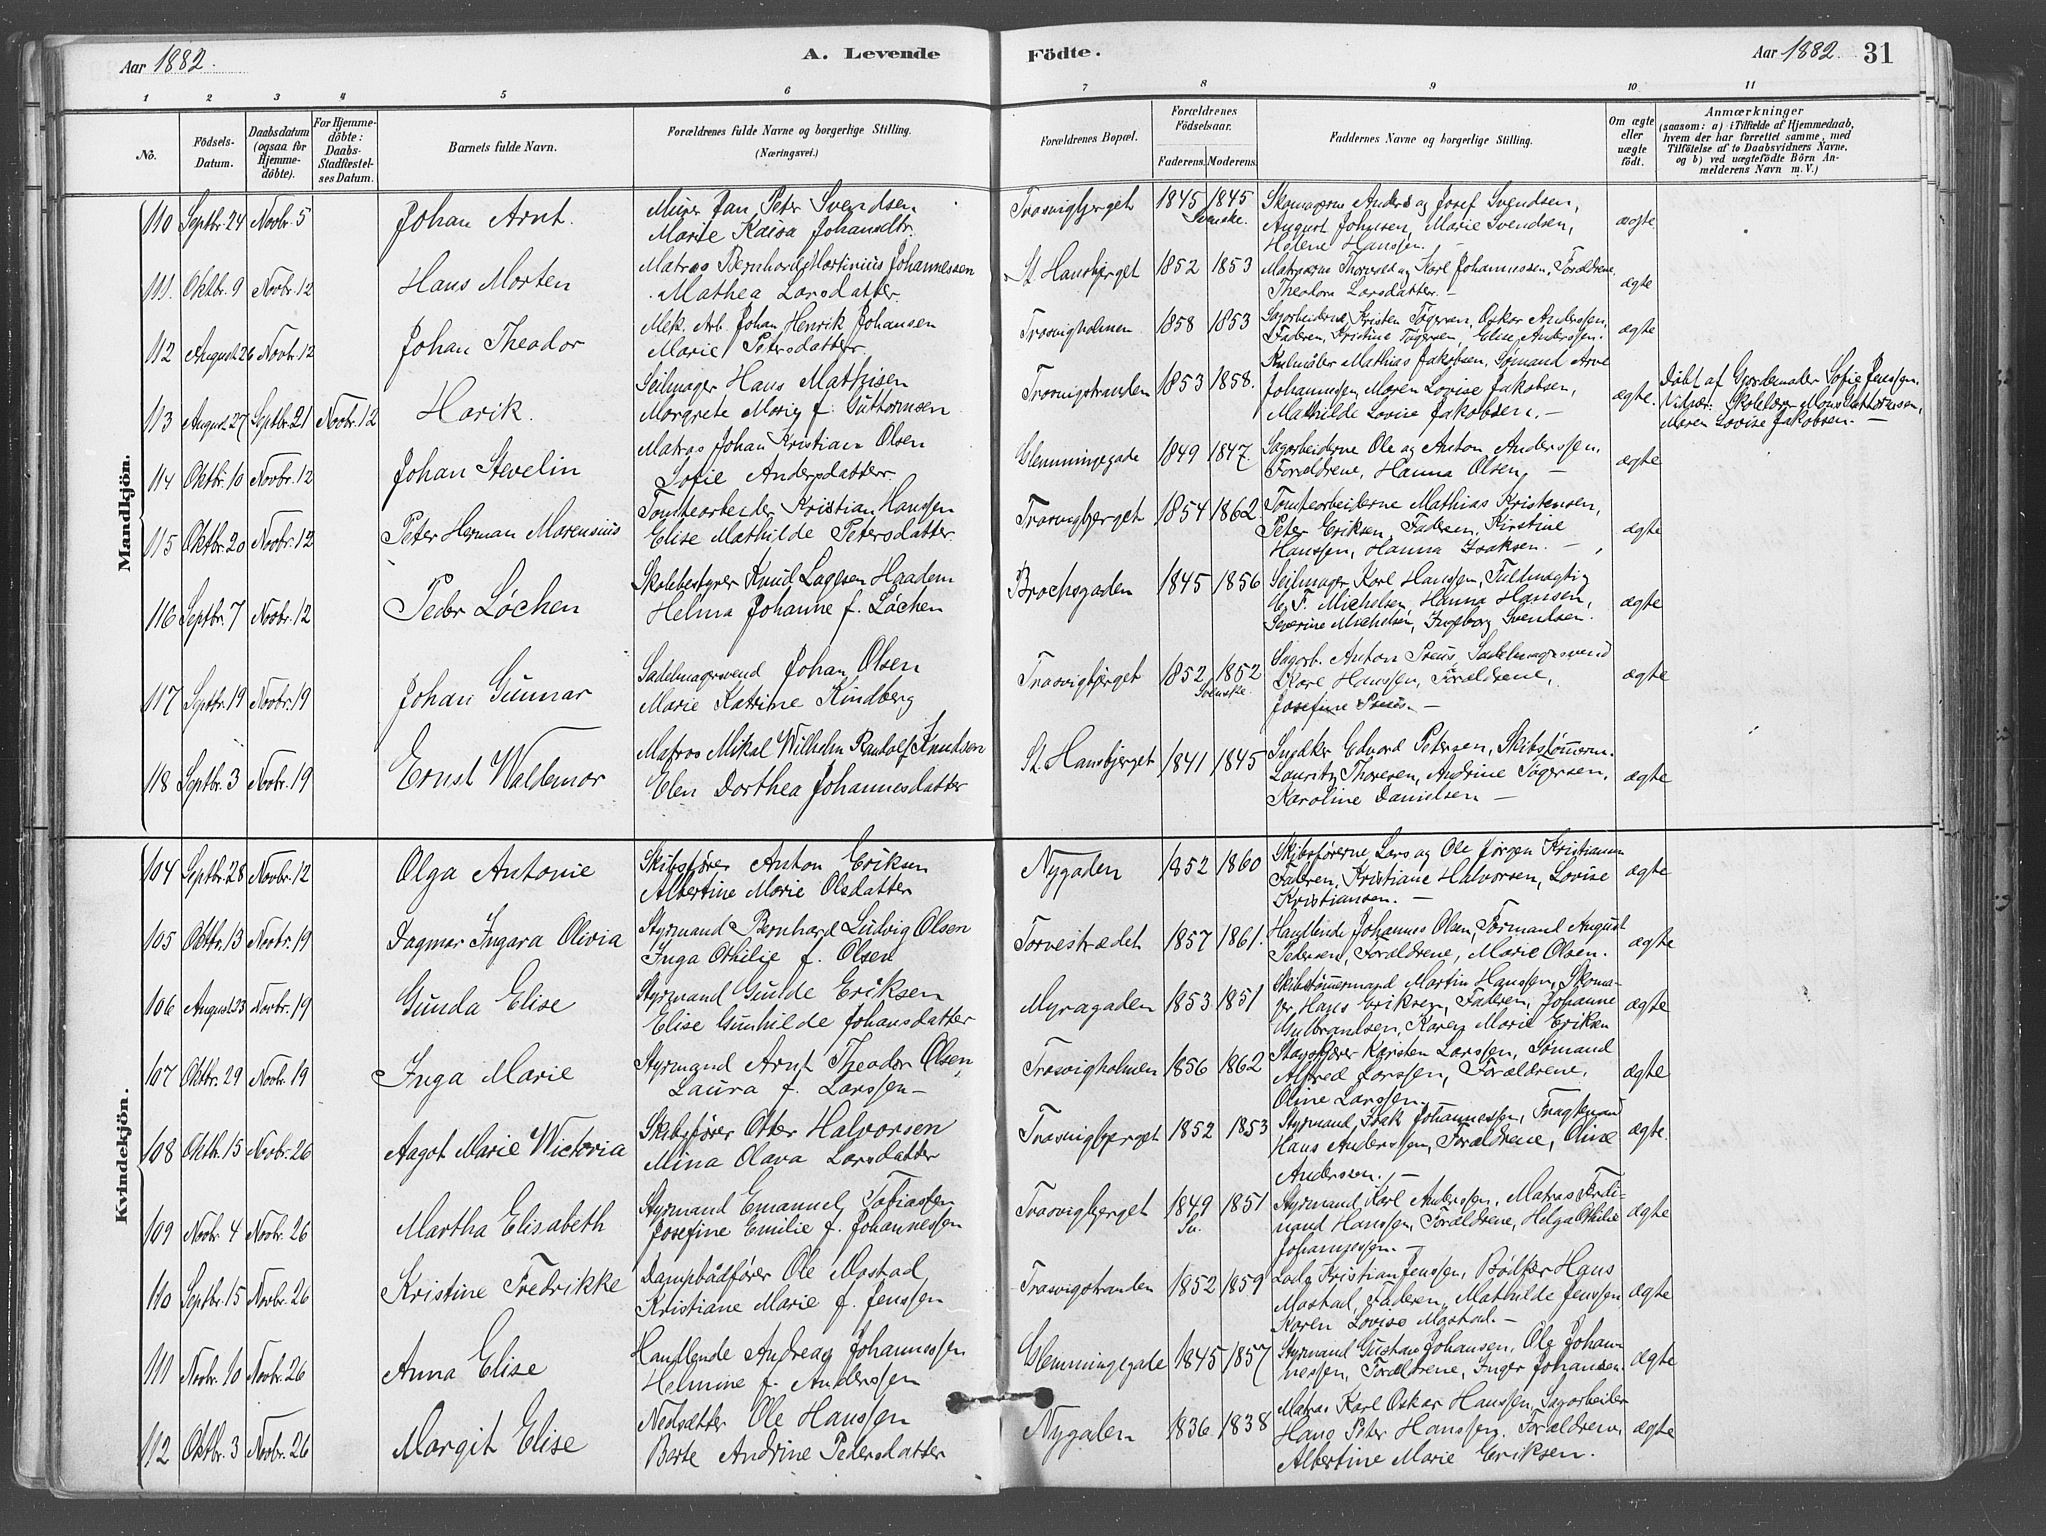 Aar 1882.
A. Levende
Födte.
Aar 1882. 31
1 2 3 4 5 6 7 8 9 10 11
No.
Födsels-Datum.
Daabsdatum (ogsaa for Hjemmedöbte).
For Hjemmedöbte: Daabs-Stadfæstelses Datum.
Barnets fulde Navn.
Forældrenes fulde Navne og borgerlige Stilling. (Næringsvei.)
Forældrenes Bopæl.
Forældrenes Födselsaar. Faderens. Moderens.
Faddernes Navne og borgerlige Stilling.
Om ægte eller uægte födt.
Anmærkninger (saasom: a) i Tilfælde af Hjemmedaab, hvem der har forrettet samme, med Tilföielse af to Daabsvidners Navne, og b) ved uægtefödte Börn Anmelderens Navn m. V.)
Mandkjön.
110 Septbr. 24 Novbr. 5 Johan Arnt. Murer Jan Peter Svendsen Trosvigbjerget 1845 1845 Skomagerne Anders og Josef Svendsen, ægte
Marie Kaisa Johansdtr. Svenske. August Johnsen, Marie Svendsen,
Helene Hanssen.
111. Oktbr. 9 Novbr. 12 Hans Morten Matros Bernhard Martinius Johannessen St. Hansbjerget 1852 1853 Matroserne Thorvald og Karl Johannessen, Forældrene, ægte
Mathea Larsdatter. Theodora Larsdatter. —
112 August 26 Novbr. 12 Johan Theodor Mek. Arb. Johan Henrik Johansen Trosvigholmen 1858 1853 Sagarbeiderne Kristen Tögersen, Oskar Anderssen, ægte
Marie Petersdatter. Faderen, Kristine Tögersen, Elise Anderssen.
113 August 27 Septbr. 21 Novbr. 12 Harik. Seilmager Hans Mathisen Trosvigstranden 1853 1858. Kulmåler Mathias Jakobsen, Sömand Arve ægte. Döbt af Gjordemoder Sofie Jenssen.
Margrete Marie f. Guttormsen Johannesen, Maren Lovise Jakobsen, Vidner: Skolelærer Mons Guttormsen,
Mathilde Lovise Jakobsen. — Maren Lovise Jakobsen. —
114 Oktbr. 10 Novbr. 12 Johan Stevelin Matros Johan Kristian Olsen Clemmingsgade 1849 1847. Sagarbeiderne Ole og Anton Anderssen, ægte
Sofie Andersdatter. Forældrene, Hanna Olsen, —
115 Oktbr. 20 Novbr. 12 Peter Herman Marensius Tomtearbeider Kristian Hanssen Trosvigbjerget 1854 1862 Tomtearbeiderne Mathias Kristensen, ægte
Elise Mathilde Petersdatter. Peter Eriksen, Faderen, Kirstine
Hanssen, Hanna Isaksen. —
116 Septbr. 7 Novbr. 12 Peder Löchen Skolebestyrer Knud Lagesen Haadem Brochsgaden 1845 1856 Seilmager Karl Hanssen, Fuldmægtig ægte
Helma Johanne f. Löchen F. Michelsen, Hanna Hansen,
Severine Michelsen, Ingeborg Svendsen.
117 Septbr. 19 Novbr. 19 Johan Gunnar Sadelmagersvend Johan Olsen Trosvigbjerget 1852 1852 Sagarb. Anton Preus, Sadelmagersvend ægte
Marie Katrine Kindberg Svenske. Karl Hanssen, Forældrene,
Josefine Preus. —
118 Septbr. 3 Novbr. 19 Ernst Waldemar Matros Mikal Wilhelm Randolf Knudsen St. Hansbjerget 1841 1845 Snedker Edvard Petersen, Skibstömmerm. ægte
Elen Dorthea Johannesdatter Lauritz Thoresen, Andrine Tögersen,
Karoline Danielsen —
Kvindekjön.
104 Septbr. 28 Novbr. 12 Olga Antonie Skibsförer Anton Eriksen Nygaden 1852 1860 Skibsförerne Lars og Ole Jörgen Kristiansen ægte
Albertine Marie Olsdatter Faderen, Kristiane Halvorsen, Lovise
Kristiansen. —
105 Oktbr. 13 Novbr. 19 Dagmar Ingara Olivia Styrmand Bernhard Ludvig Olsen Torvestrædet 1857 1861. Handlende Johannes Olsen, Formand August ægte
Inga Othilie f. Olsen Petersen, Forældrene, Marie Olsen.
106 August 23 Novbr. 19 Gunda Elise Styrmand Gulde Eriksen Myragaden 1853 1851 Skibstömmermand Martin Hanssen, Skoma- ægte
Elise Gunhilde Johansdatter ger Hans Eriksen, Faderen, Johanne
Gulbrandsen, Karen Marie Eriksen
107 Oktbr. 29 Novbr. 19 Inga Marie Styrmand Arnt Theodor Olsen, Trosvigholmen 1856 1862 Karsten Larssen, Sömand ægte
Laura f. Larssen — Alfred Larssen, Forældrene,
Oline Larssen.
108 Oktbr. 15 Novbr. 26 Aagot Marie Victoria Skibsförer Otter Halvorsen Trosvigbjerget 1852 1853 Styrmand Isak Johannessen, Fragtemand ægte.
Mina Olava Larsdatter Hans Anderssen, Forældrene, Oline
Andersen. —
109 Novbr. 4 Novbr. 26 Martha Elisabeth Styrmand Emanuel Tobiassen Trosvigbjerget 1849 1851 Styrmand Karl Anderssen, Matros Ferdi- ægte
Josefine Emilie f. Johannessen Sv. nand Hanssen, Forældrene, Helga Othilie
Johannessen. —
110 Septbr. 15 Novbr. 26 Kristine Fredrikke Dampbådförer Ole Mostad Trosvigstranden 1852 1859 Lods Kristian Jenssen, Bödker Hans ægte
Kristiane Marie f. Jenssen Mostad, Faderen, Mathilde Jenssen
Karen Lovise Mostad. —
111 Novbr. 10 Novbr. 26 Anna Elise Handlende Andreas Johannessen Clemmingsgade 1845 1857 Styrmand Gustav Johansen, Ole Johan- ægte
Helmine f. Anderssen nessen, Forældrene, Inger Johansen
112 Oktbr. 3 Novbr. 26 Margit Elise Nedsætter Ole Hanssen Nygaden 1836 1838 Matros Karl Oskar Hanssen, Sagarbeider ægte
Andrine Pedersdatter Hans Peter Hanssen, Forældrene,
Albertine Marie Eriksen.